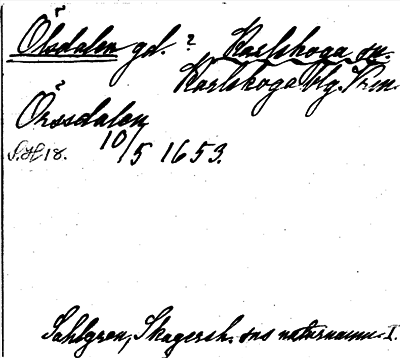 Ölsdalen gd. ? Karlskoga sn.
Karlskoga blg. Vrm.
Örssdalen
S.H 18. 10/5 1653.
Sahlgren, Skagersh. sns naturnamn I.